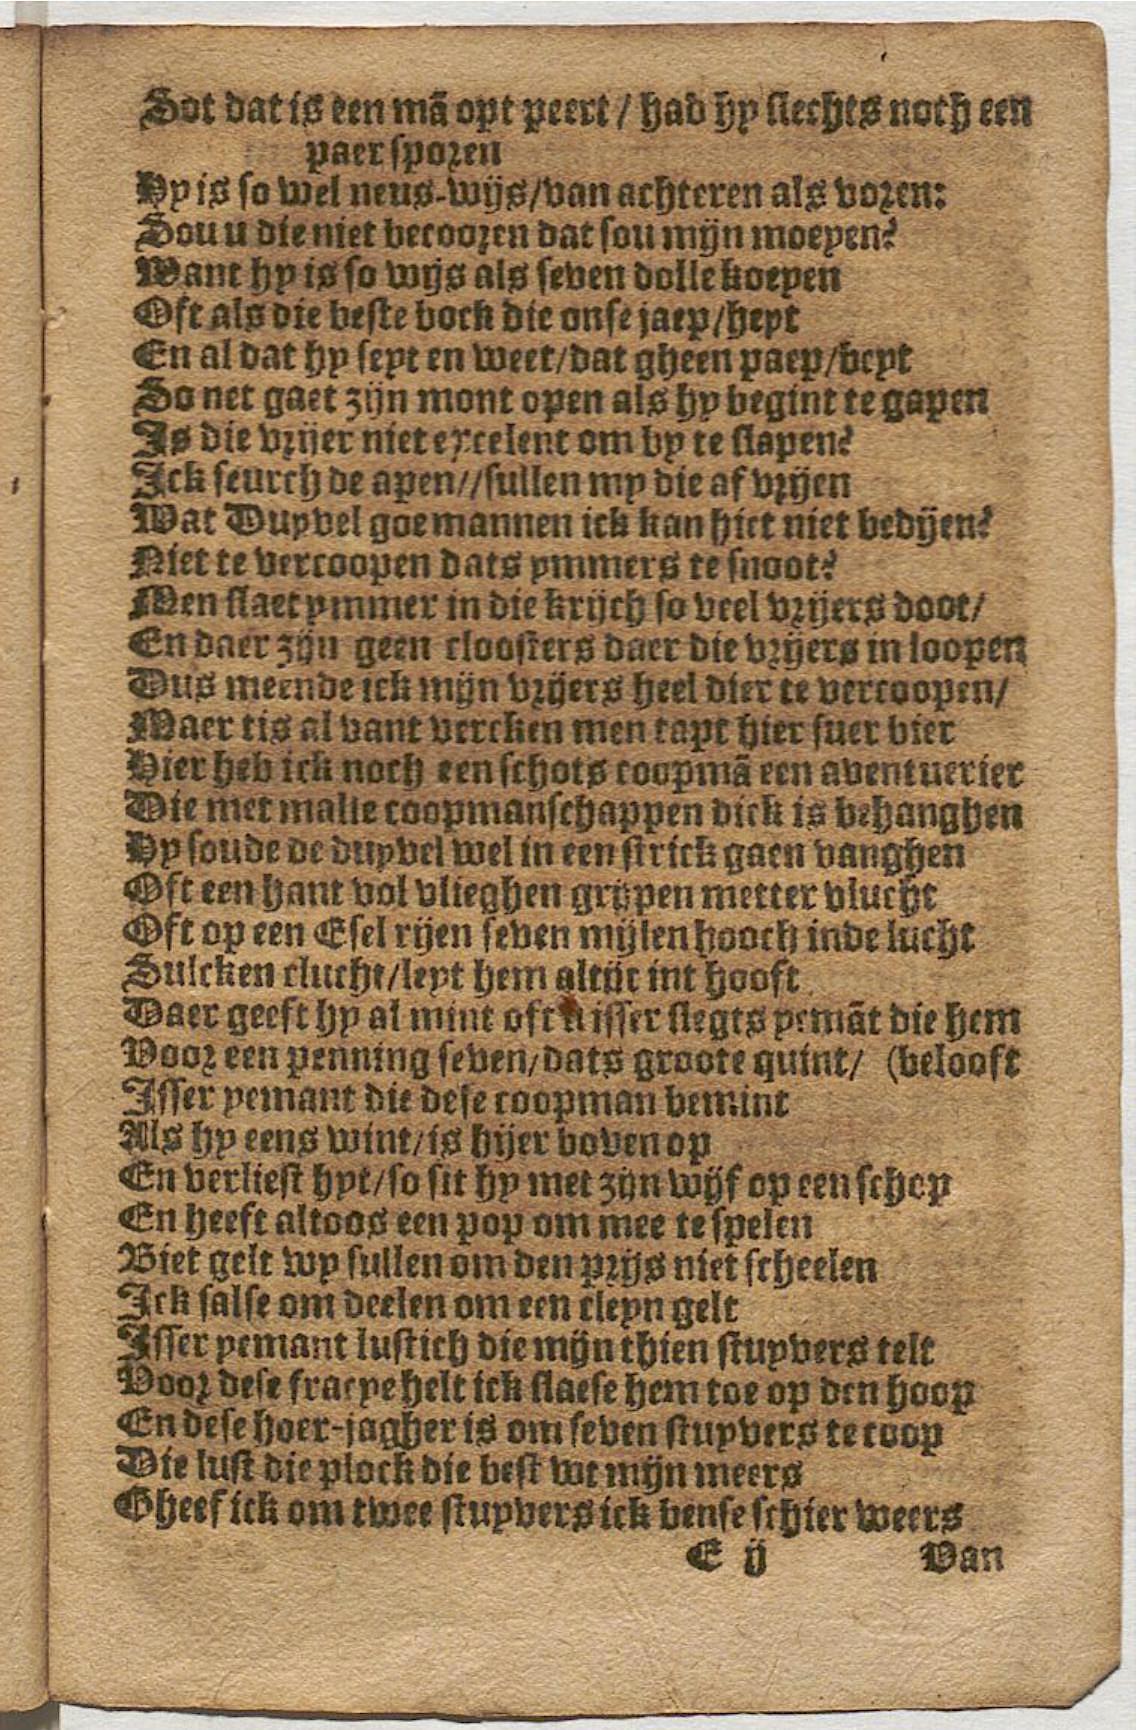 Sot dat is een mā opt peert / had hy slechts noch een
paer sporen
Hy is so wel neus-wijs/van achteren als voren:
Sou u die niet becooren dat sou mijn moeyen?
Want hy is so wijs als seven dolle koeyen
Oft als die beste bock die onse jaep/heyt
En al dat hy seyt en weet/dat gheen paep/beyt
So net gaet zijn mont open als hy begint te gapen
Is die vrijer niet excelent om by te slapen?
Ick seurch de apen//sullen my die af vrijen
Wat Duyvel goe mannen ick kan hier niet bedijen?
Niet te vercoopen dats ymmers te snoot?
Men slaet ymmer in die krijch so veel vrijers doot/
En daer zijn geen cloosters daer die vrijers in loopen
Dus meende ick mijn vrijers heel dier te vercoopen/
Maer tis al vant vercken men tapt hier suer bier
Hier heb ick noch een schots coopmā een aventuerier
Die met malle coopmanschappen dick is behanghen
Hy soude de duyvel wel in een strick gaen vanghen
Oft een hant vol vlieghen grijpen metter vlucht
Oft op een Esel rijen seven mijlen hooch inde lucht
Sulcken clucht/leyt hem altijt int hooft
Daer geeft hy al mint oft isser slegts yemāt die hem
Voor een penning seven/dats groote quint/ (belooft
Isser yemant die dese coopman bemint
Als hy eens wint/is hijer boven op
En verliest hyt/so sit hy met zijn wijf op een schop
En heeft altoos een pop om mee te spelen
Biet gelt wy sullen om den prijs niet scheelen
Ick salse om deelen om een cleyn gelt
Isser yemant lustich die mijn thien stuyvers telt
Voor dese fraeye helt ick slaese hem toe op den hoop
En dese hoer-jagher is om seven stuyvers te coop
Die lust die plock die best wt mijn meers
Gheef ick om twee stuyvers ick bense schier weers
E ij Van